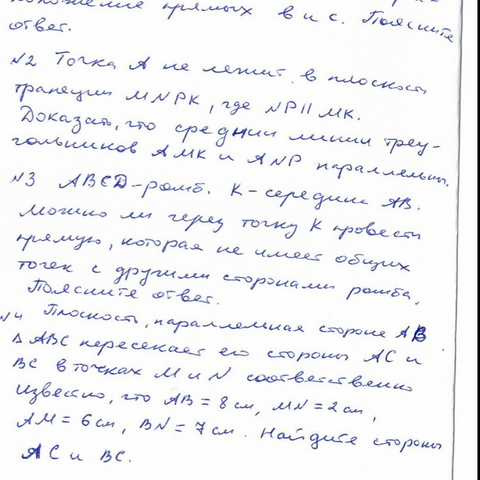 прямых в и с. Поясните
ответ.
№2 Точка А не лежит в плоскости
трапеции MNPK, где NP || MK.
Доказать, что средние линии треу-
гольников AMK и ANP параллельны.
№3 ABCD-ромб. К-середина АВ.
Можно ли через точку К провести
прямую, которая не имеет общих
точек с другими сторонами ромба.
Поясните ответ.
№4 Плоскость, параллельная стороне АВ
∆ ABC пересекает его стороны АС и
ВС в точках М и N соответственно
Известно, что АВ = 8 см, MN = 2 см,
АМ = 6 см, BN = 7 см. Найдите стороны
АС и ВС.